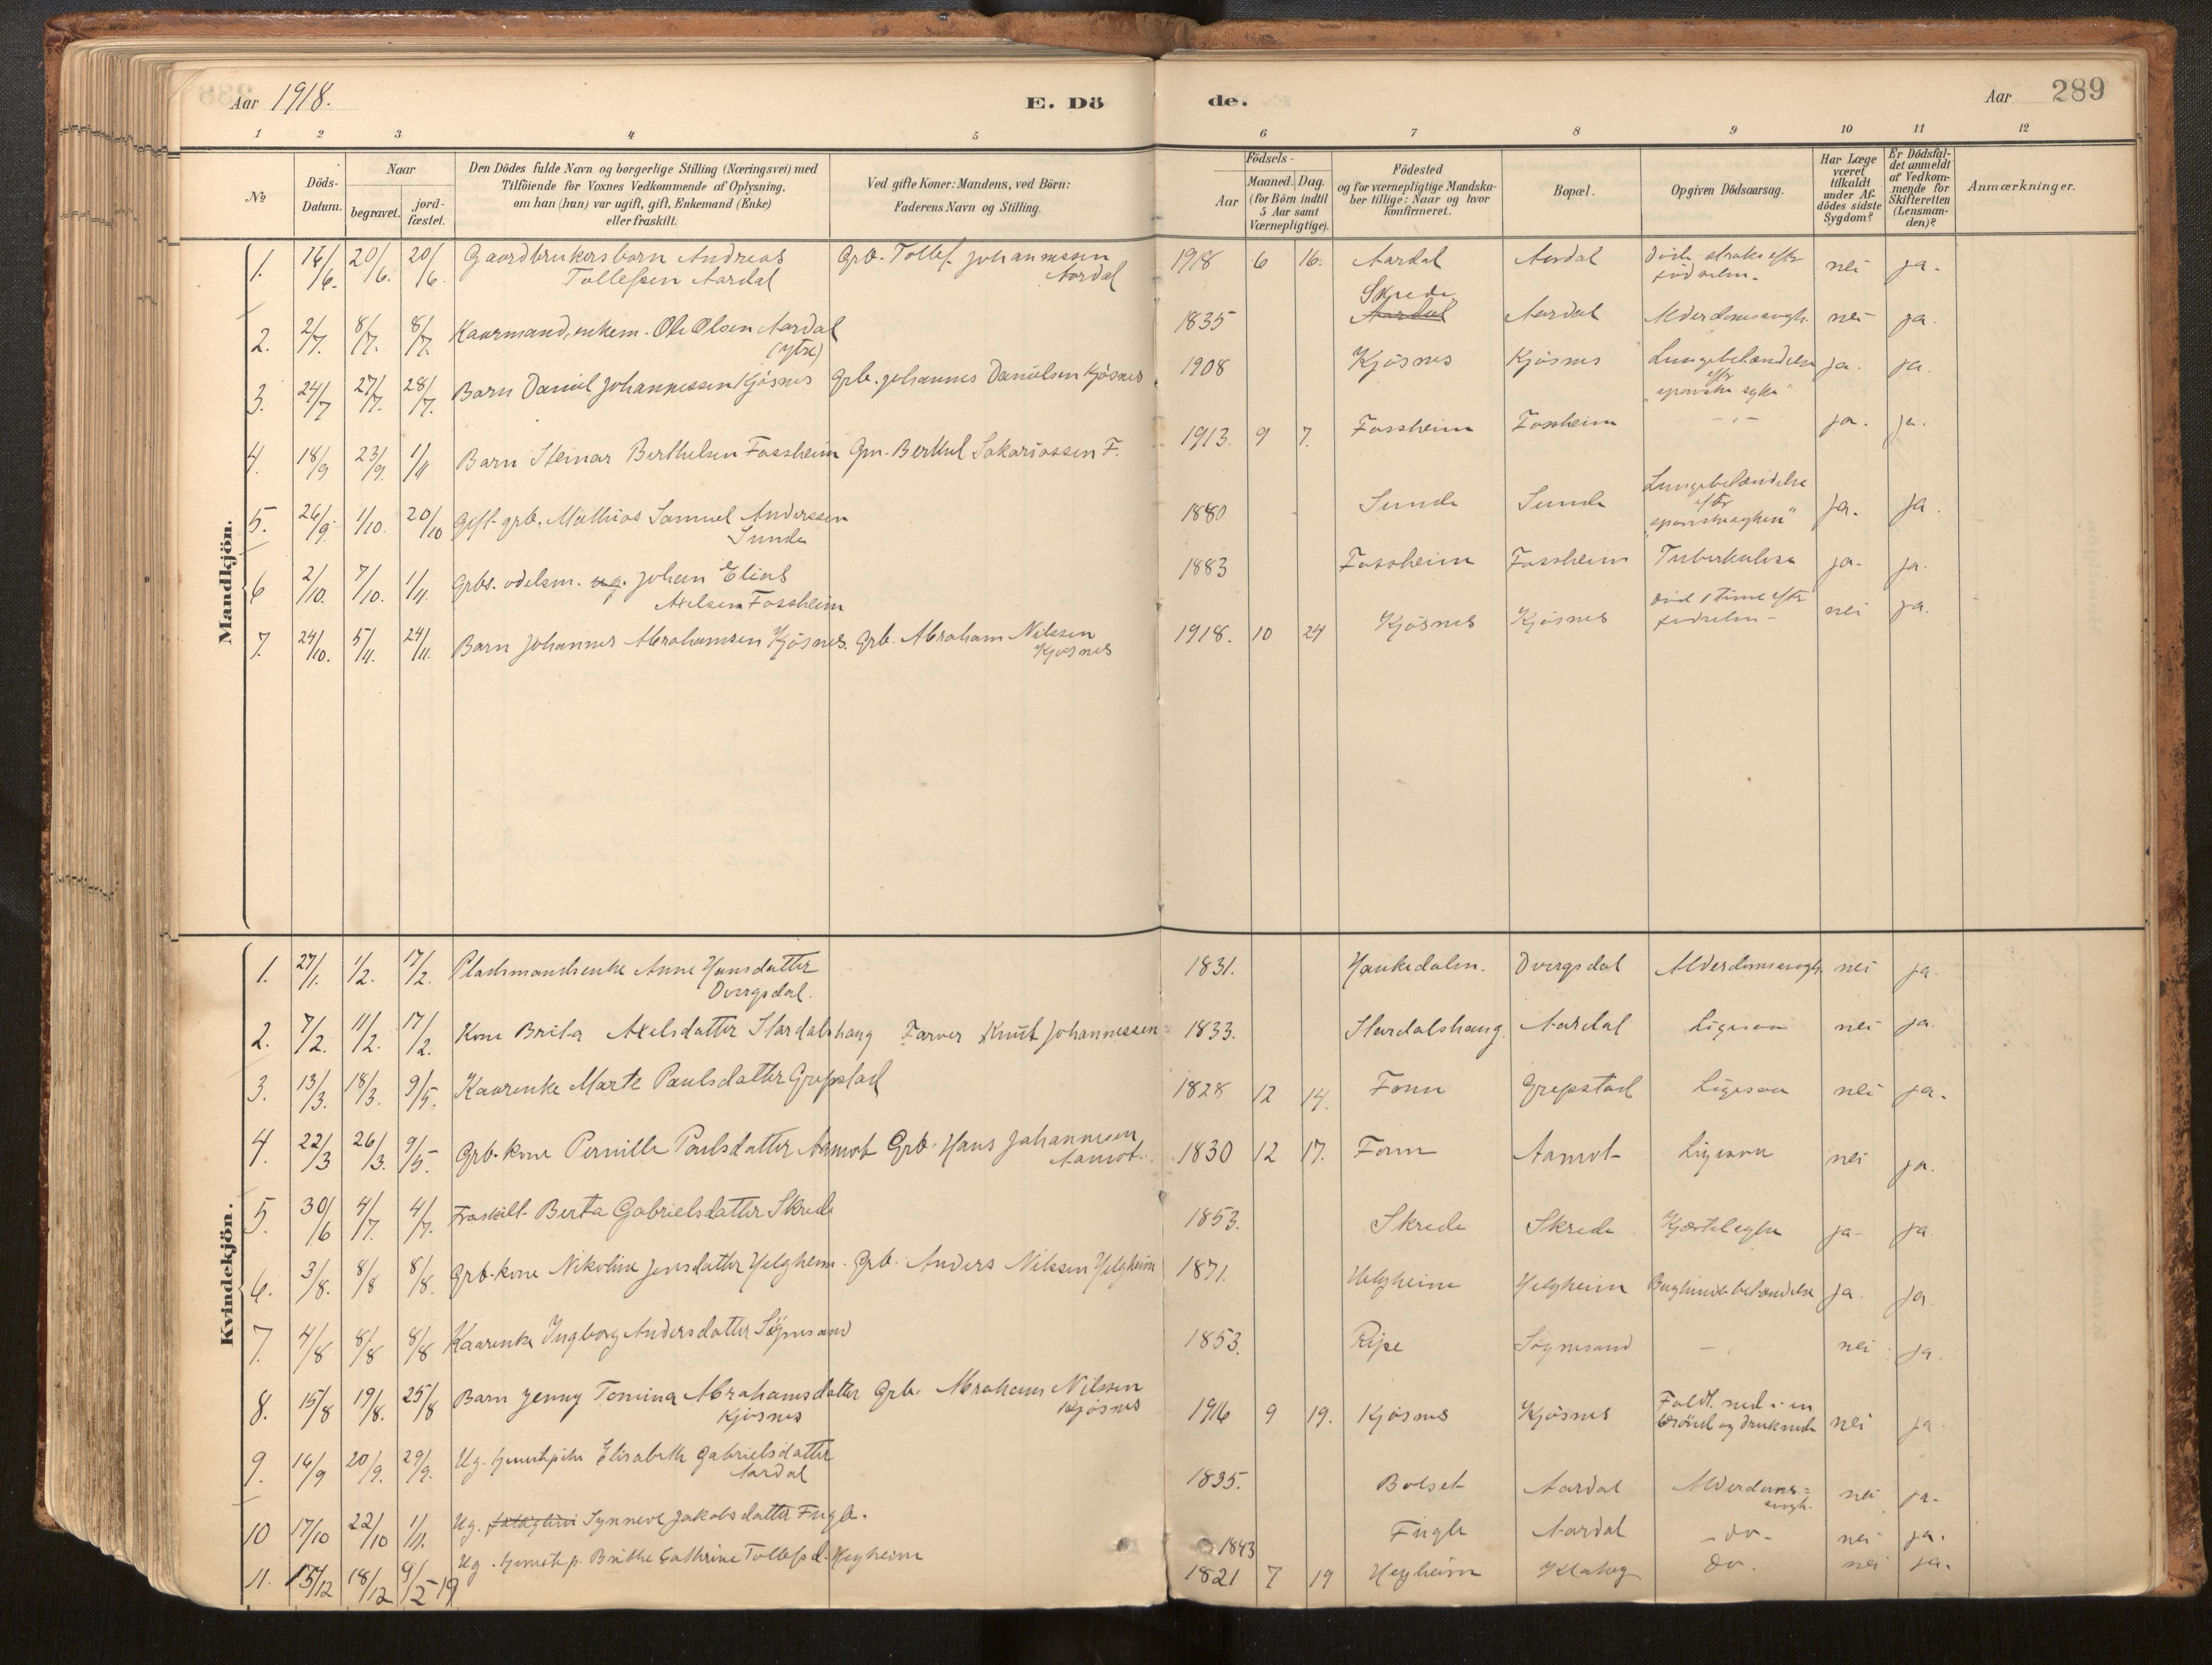 Aar 1918.
E. Dö
de.
Aar 289
1 2 3 4 5 6 7 8 9 10 11 12
No
Döds-Datum.
Naar
begravet.
jord-fæstet.
Den Dödes fulde Navn og borgerlige Stilling (Næringsvei) med
Tilföiende for Voxnes Vedkommende af Oplysning.
om han (hun) var ugift, gift, Enkemand (Enke)
eller fraskilt.
Ved gifte Koner: Mandens, ved Börn:
Faderens Navn og Stilling.
Födsels-
Aar
Maaned. Dag.
(for Börn indtil
5 Aar samt
Værnepligtige).
Födested
og for værnepligtige Mandska-
ber tillige: Naar og hvor
konfirmeret.
Bopæl.
Opgiven Dödsaarsag.
Har Læge
været
tilkaldt
under Af-
dödes sidste
Sygdom?
Er Dödsfal-
det anmeldt
af Vedkom-
mende for
Skifteretten
(Lensman-
den)?
Anmærkninger.
Mandkjön.
1. 16/6. 20/6. 20/6 Gaardbrukersbarn Andreas Grb. Tollef Johannessen 1918 6 16. Aardal Aardal Døde straks eftr nei ja.
Tollefsen Aardal Aardal födselen.
Skrede
2. 2/7. 8/7. 8/7. Kaarmand, enkem. Ole Olsen Aardal 1835 Aardal Aardal Alderdomssvagh. nei ja.
(ytre)
3. 24/7 27/7. 28/7. Barn Daniel Johannessen Kjösnes Grb. Johannes Danielsen Kjösnes 1908 Kjösnes Kjösnes Lungebetændelse ja. ja.
eftr
"spanske syke"
4. 18/9 23/9. 1/11 Barn Steinar Berthelsen Fossheim Gm. Berthel Sakariassen F. 1913. 9 7. Fossheim Fossheim -"- ja. ja.
5. 26/9. 1/10. 20/10 Gift grb. Mathias Samuel Anderssen 1880 Sunde Sunde Lungebetændelse ja. ja.
Sunde eftr
6 2/10. 7/10. 1/11. Grbs. odelsm. ug. Johan Elias 1883 Fossheim Fossheim Tuberkulose ja. ja.
Axelsen Fossheim
7. 24/10. 5/11. 24/11. Barn Johannes Abrahamsen Kjösnes. Grb. Abraham Nilssen 1918. 10 24 Kjösnes Kjösnes död 1 time eftr nei ja.
Kjösnes födselen -
Kvindekjön.
1. 27/1. 1/2. 17/2. Pladsmandsenke Anne Hansdatter 1831. Haukedalen. Dvergsdal Alderdomssvagh. nei ja
Dvergsdal.
2. 7/2. 11/2. 17/2. Kone Brita Axelsdatter Stardalshaug Farver Knut Johannessen 1833. Stardalshaug. Aardal Ligesaa nei ja.
3. 13/3. 18/3. 9/5. Kaarenke Marte Paulsdatter Grepstad 1828 12 14. Fonn Grepstad Ligesaa nei ja.
4. 22/3 26/3. 9/5- Grb.kone Pernille Paulsdatter Aamot Grb. Hans Johannesen 1830 12 17. Fonn Aamot Ligesaa nei ja.
Aamot.
5. 30/6 4/7. 4/7. Fraskilt Berta Gabrielsdatter Skrede 1853. Skrede Skrede ja- ja.
6. 3/8. 8/8 8/8. Grb.kone Nikoline Jensdatter Helgheim. Grb. Anders Nilssen Helgheim 1871. Helgheim Helgheim Bughindebetændelse ja. ja.
7. 4/8 8/8 8/8 Kaarenke Ingborg Andersdatter Sögnesand 1853. Ripe Sögnesand - nei ja.
8. 15/8 19/8. 25/8 Barn Jenny Tomina Abrahamsdatter Grb. Abraham Nilssen 1916 9 19. Kjösnes Kjösnes Faldt ned i en nei ja
Kjösnes Kjösnes brönd og druknede
9. 16/9 20/9. 29/9. Ug. Elisabeth Gabrielsdatter 1835. Bolset Aardal Alderdoms= nei ja-
Aardal svagh.
10 17/10 22/10 1/11. Ug. Synneve Jakobsdatter Fugle. 1843 Fugle Aardal -do- nei ja.
11. 15/12 18/12 9/2-19 Ug. Brithe Cathrine Tollefsd. Hegheim 1821 7 19 Hegheim do. nei ja.